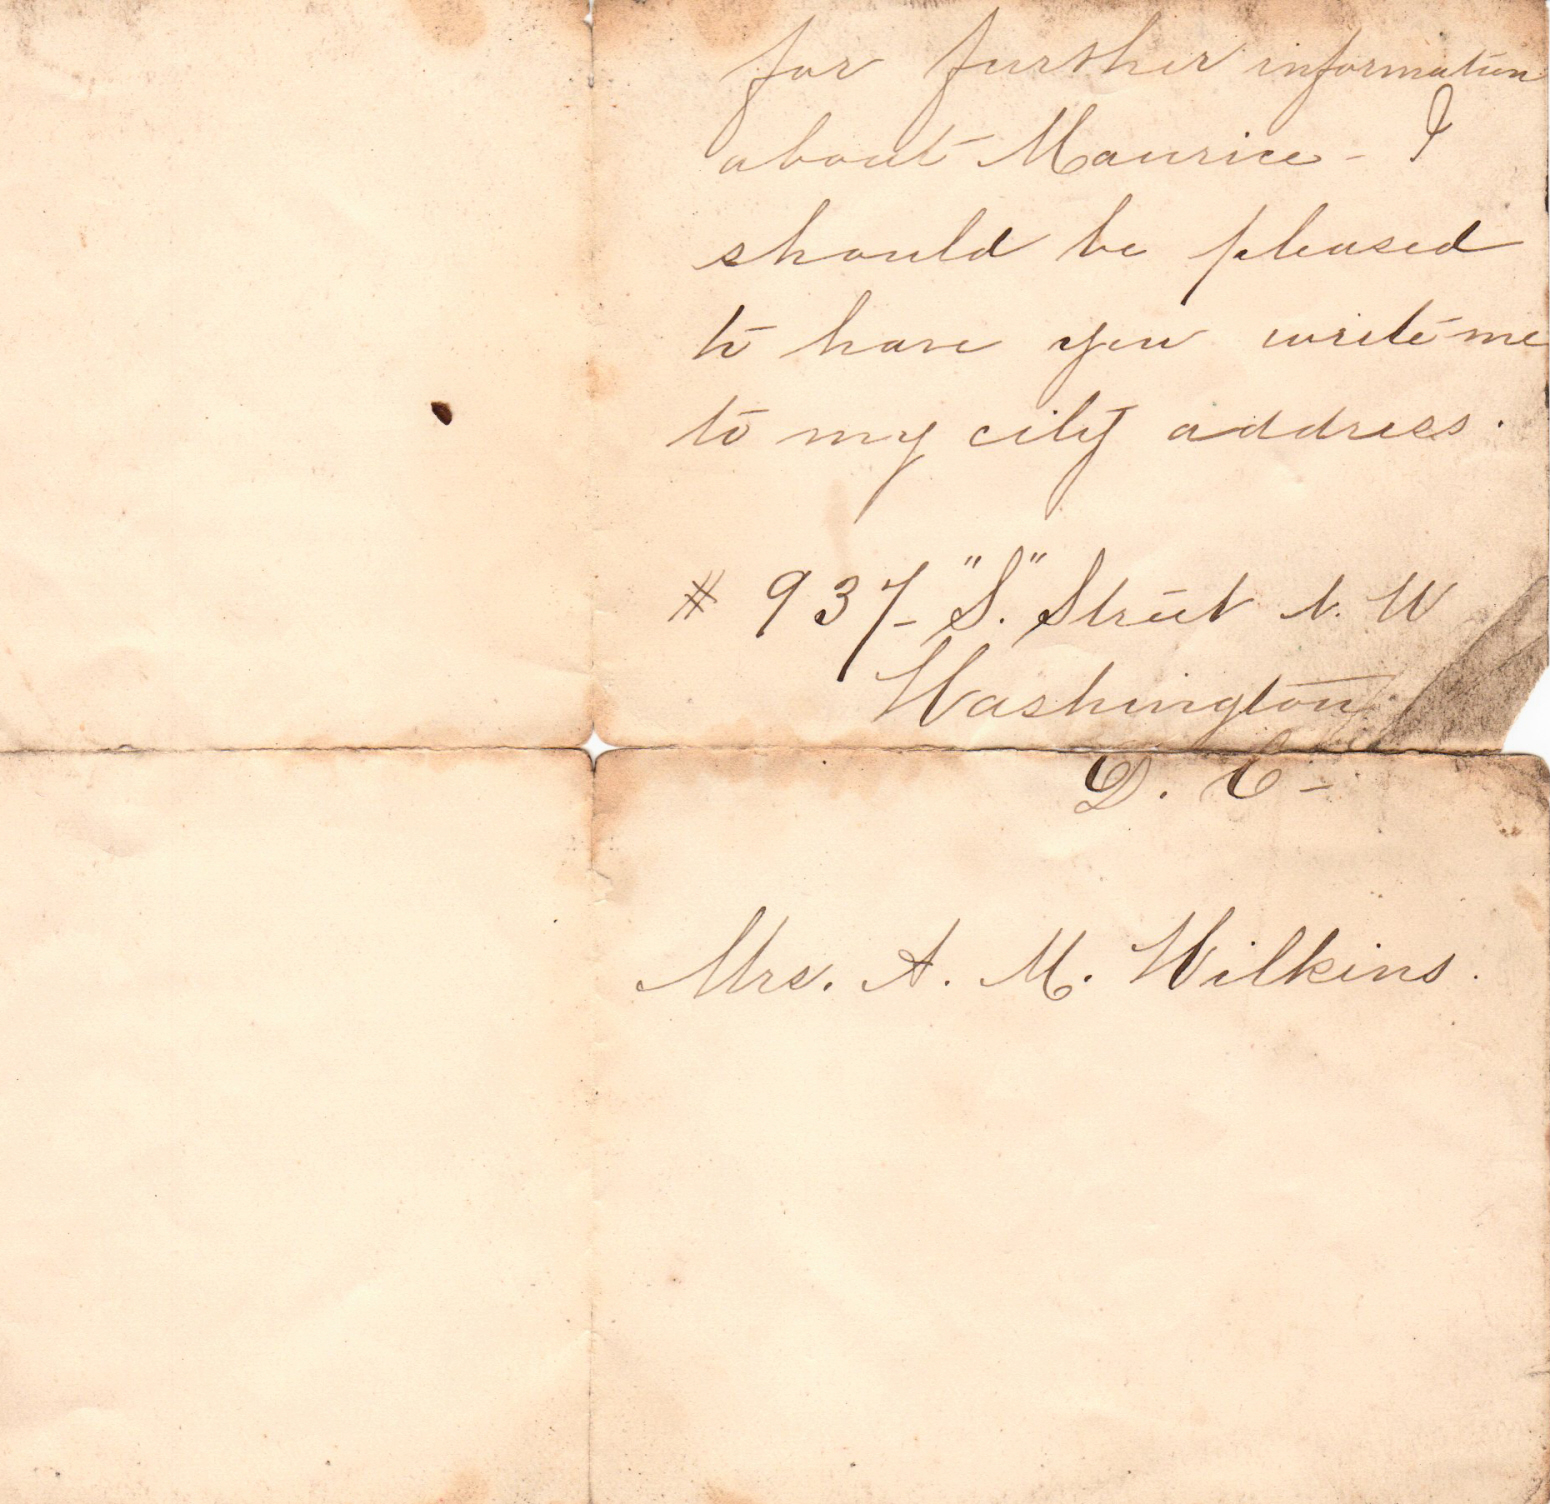 for further information
about Maurice - I
should be pleased
to have you write me
to my city address.
# 937- "S." Street N. W
Washington
D. C -
Mrs. A. M. Wilkins.